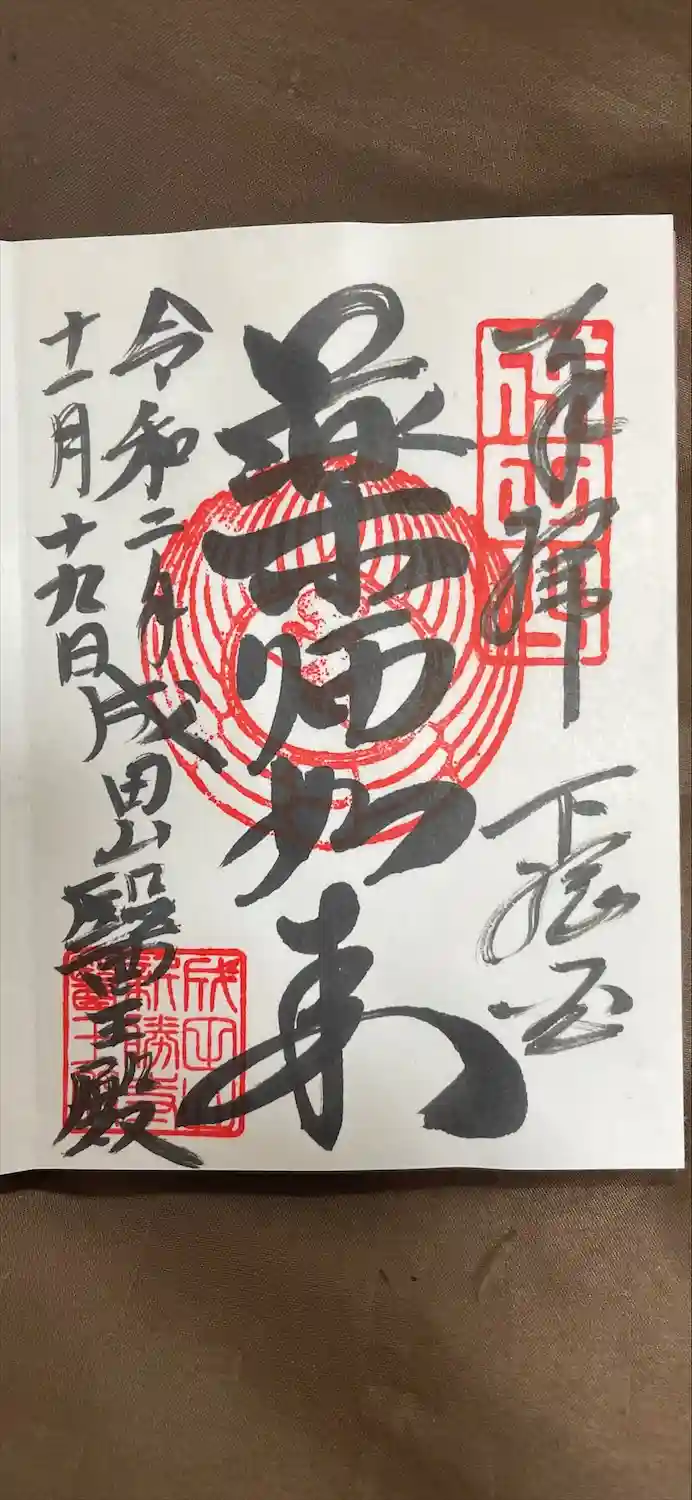 奉拝
下総国
薬師如来
令和二年
十一月十九日
成田山醫王殿
成田山
成田山
新勝寺